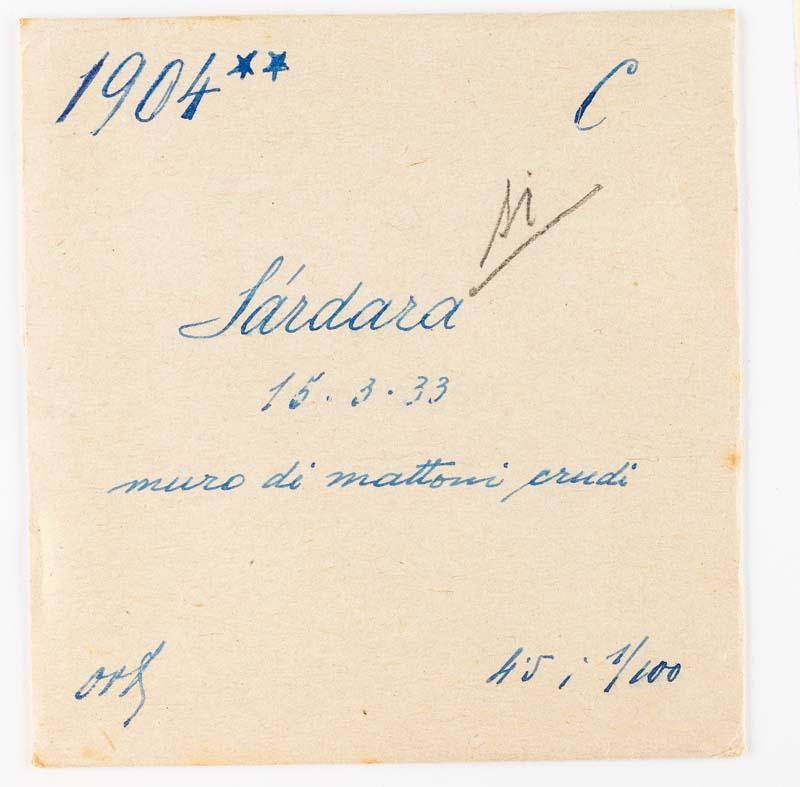 1904** C
si
Sárdara
15.3.33
muro di mattoni crudi
4.5 ; 1/100